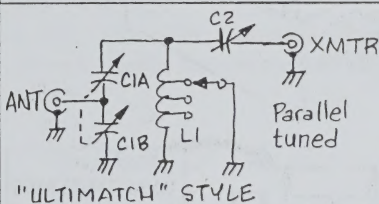 C2
XMTR
C1A
ANT
C1B
L1
Parallel
tuned
"ULTIMATCH" STYLE